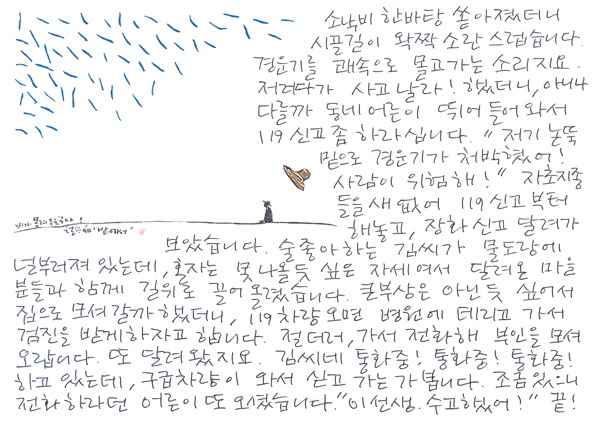 소낙비 한바탕 쏟아졌더니
시골길이 왁짝 소란스럽습니다.
경운기를 쾌속으로 몰고가는 소리지요.
저러다가 사고날라! 했더니, 아니나
다를까 동네어른이 뛰어 들어와서
119 신고 좀 하라십니다. "저기 논뚝
밑으로 경운기가 처박혔어!
사람이 위험해!" 자초지종
들을새 없어 119신고부터
해놓고, 장화신고 달려가
보았습니다. 술좋아하는 김씨가 물도랑에
널부러져 있는데, 혼자는 못나올듯 싶은 자세여서 달려온 마을
분들과 함께 길위로 끌어 올렸습니다. 큰부상은 아닌듯 싶어서
집으로 모셔갈까 했더니, 119차량 오면 병원에 데리고 가서
검진을 받게하자고 합니다. 절더러, 가서 전화해 부인을 모셔
오랍니다. 또 달려왔지요. 김씨네 통화중! 통화중! 통화중!
하고 있는데, 구급차량이 와서 싣고 가는가 봅니다. 조금있으니
전화하라던 어른이 또 오셨습니다. "이선생. 수고했어!" 끝!